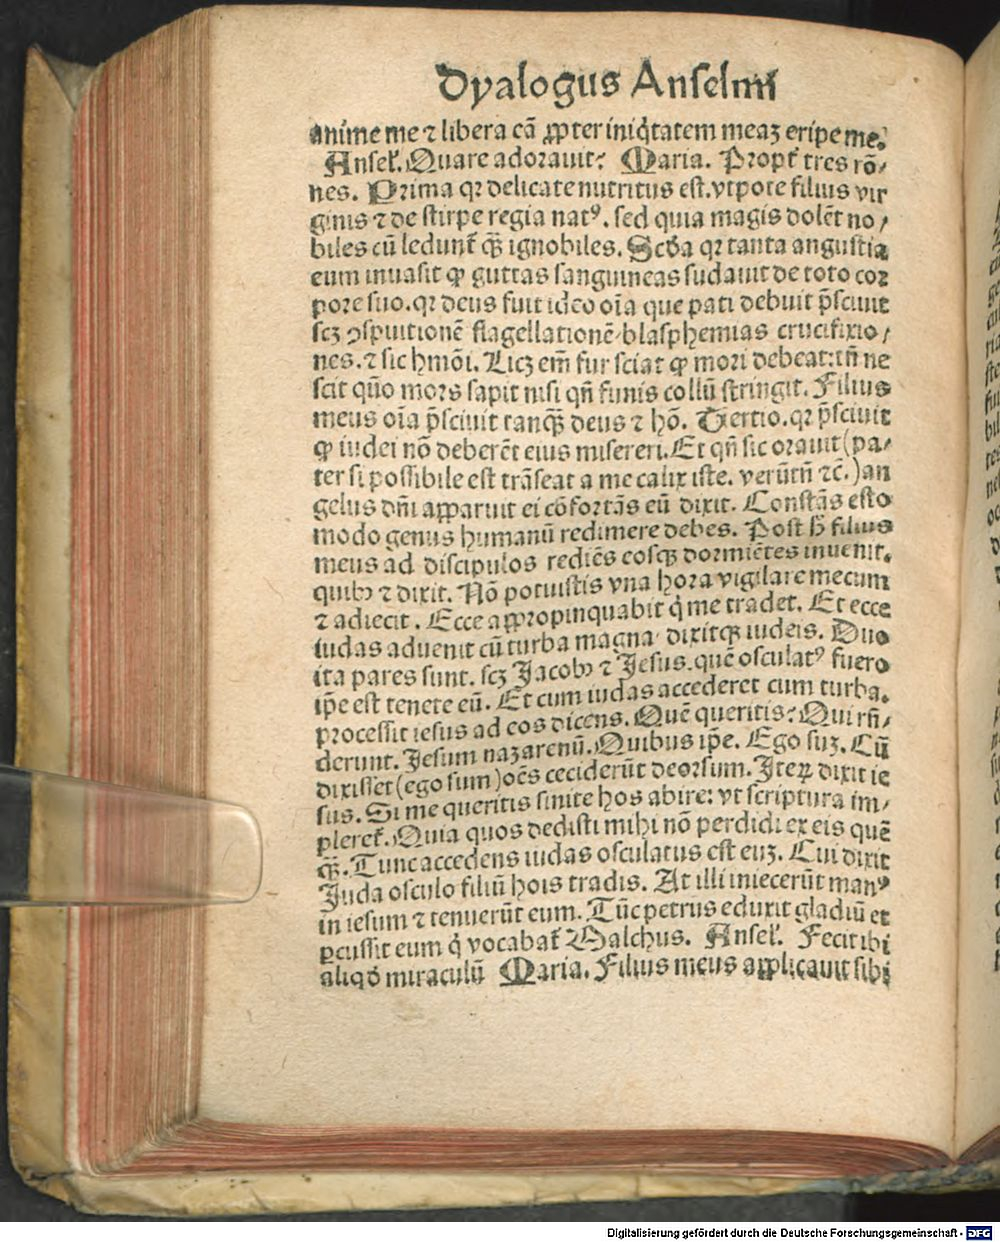 Dyalogus Anselmi
anime me ⁊ libera eā ꝓpter iniq̇tatem meaꝫ eripe me.
Anselꝰ. Quare adorauit? Maria. Propt̃ tres rō⸗
nes. Prima qꝛ delicate nutritus est. vtpote filius vir
ginis ⁊ de stirpe regia natꝰ. sed quia magis dolēt no⸗
biles cū ledunt̃ q̃ꝫ ignobiles. Scd̃a qꝛ tanta angustia
eum inuasit ꝙ guttas sanguineas sudauit de toto coꝛ
pore suo. qꝛ deus fuit ideo oīa que pati debuit p̄sciuit
scꝫ ꝯspuitionē flagellationē blasphemias crucifixio⸗
nes. ⁊ sic hmōi. Licꝫ em̄ fur sciat ꝙ mori debeat: tn̄ ne
scit quō mors sapit nisi qn̄ funis collū stringit. Filius
meus oīa p̄sciuit tanq̃ꝫ deus ⁊ hō. Tertio. qꝛ p̄sciuit
ꝙ iudei nō deberēt eius misereri. Et qn̄ sic orauit (pa⸗
ter si possibile est trāseat a me calix iste. verūtn̄ ⁊c̄.) an
gelus dn̄i apparuit ei cōfortās eū dixit. Constās esto
modo genus humanū redimere debes. Post h̄ filius
meus ad discipulos rediēs eosqꝫ dormiētes inuenit.
quibꝰ ⁊ dixit. Nō potuistis vna hora vigilare mecum
⁊ adiecit. Ecce appropinquabit q̇ me tradet. Et ecce
iudas aduenit cū turba magna dixitqꝫ iudeis. Duo
ita pares sunt. scꝫ Jacobꝰ ⁊ Jesus. quē osculatꝰ fuero
ip̄e est tenete eū. Et cum iudas accederet cum turba.
processit iesus ad eos dicens. Quē queritis? Qui rn̄⸗
derunt. Jesum nazarenū. Quibus ip̄e. Ego suꝫ. Cū
dixisset (ego sum) oēs ceciderūt deorsum. Iteꝝ dixit ie
sus. Si me queritis sinite hos abire: vt scriptura im⸗
pleret̃. Quia quos dedisti mihi nō perdidi ex eis quē
q̃ꝫ. Tunc accedens iudas osculatus est euꝫ. Cui dixit
Juda osculo filiū hois tradis. At illi iniecerūt manꝰ
in iesum ⁊ tenuerūt eum. Tūc petrus eduxit gladiū et
ꝑcussit eum q̇ vocabat̃ Malchus. Anselꝰ. Fecit ibi
aliqd̃ miraculū Maria. Filius meus applicauit sibi
Digitalisierung gefördert durch die Deutsche Forschungsgemeinschaft - DFG